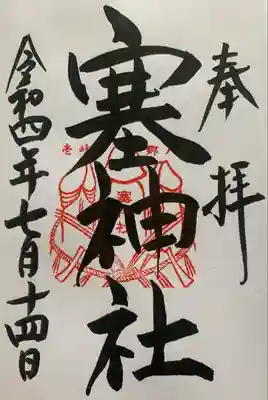 奉拝
塞神社
令和四年七月十四日